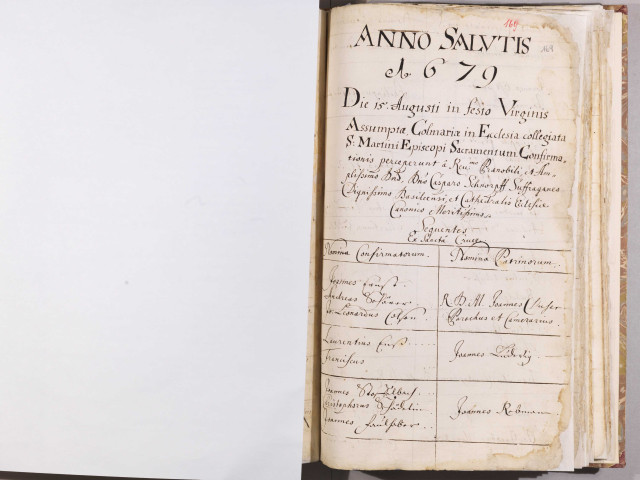 169
ANNO SALVTIS
A. 679
Die 15. Augusti in festo Virginis
Assumptæ Colmariæ in Ecclesia collegiata
S. Martini Episcopi Sacramentum Confirma-
tionis perceperunt à Reu.mo Prænobili, et Am-
plissimo Dno, Dno Casparo Schnorpff Suffraganeo
Dignissimo Basileensi, et Cathedralis Eclesiæ
Canonico Meritissimo.
Sequentes
Ex Sancta Cruce
Nomina Confirmatorum. Nomina Patrinorum.
Joannes Ernst
Andreas
Leonardus
R. D. Al. Joannes
Parochus et Camerarius.
Laurentius Ernst
Franciscus
Joannes Lüderig
Joannes
Christophorus Schädelin
Joannes Faulhaber
Joannes Rebmann